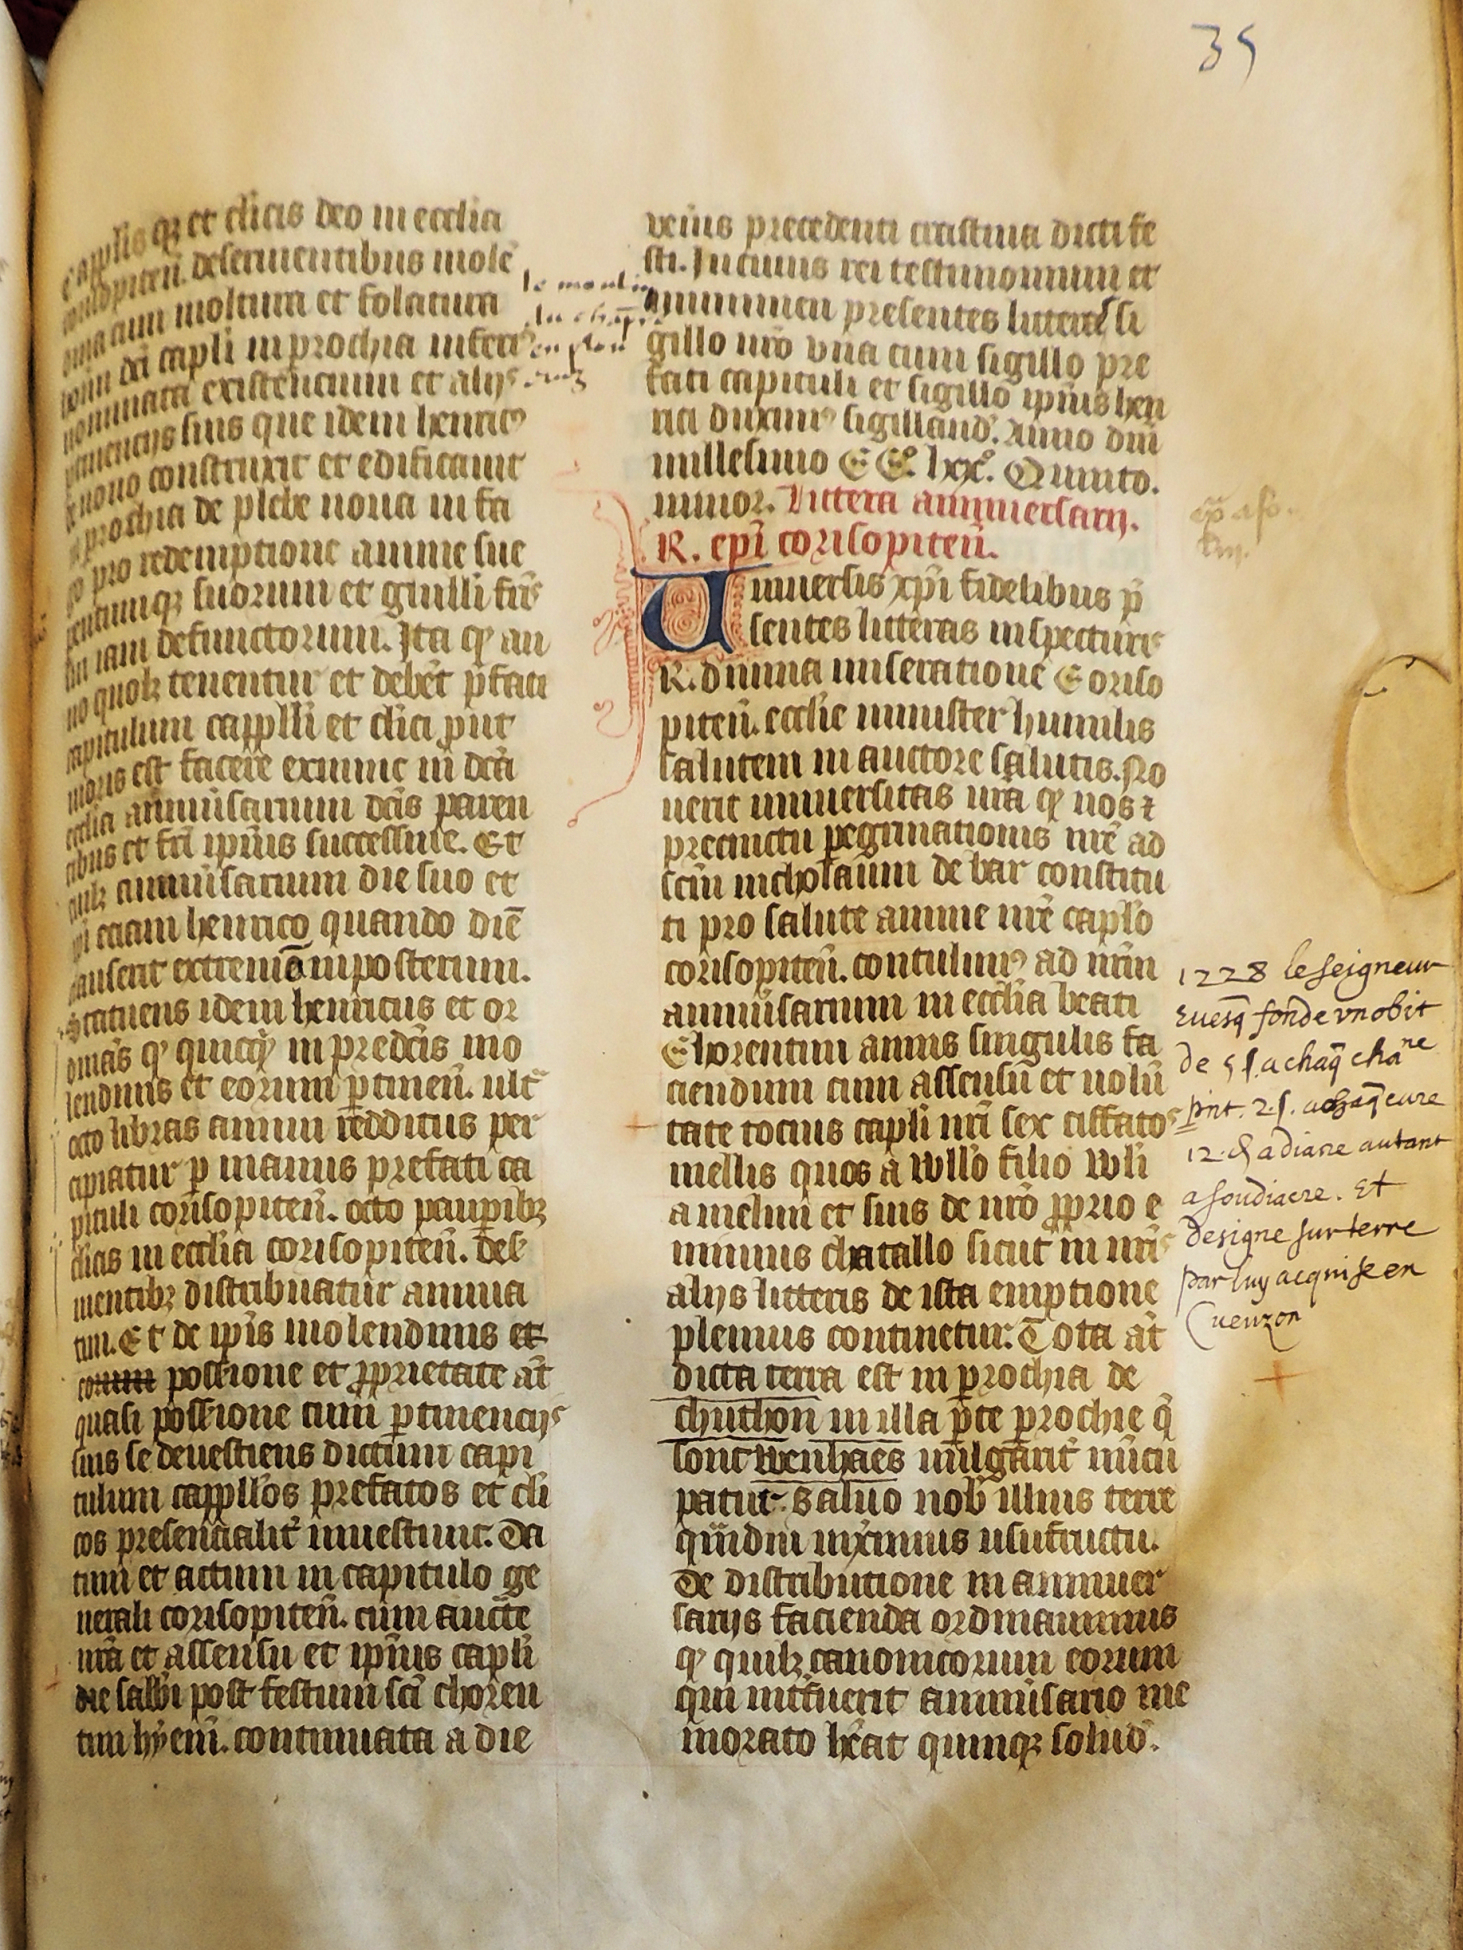 35
capplis qz et clicis deo in ecclia
corisopiteñ. deseruientibus molē
dina cum moltura et folatura
hoīm dci capli in prochia inferi9
nominata existencium et alijs
ptinencijs suis que idem henric9
de nouo construxit et edificauit
in prochia de plebe noua in fa
go pro redemptione anime sue
parentumqz suorum et guilli frīs
sui iam defunctorum. Ita qz an
no quolz tenentur et debēt pfati
capitulum capplli et clici put
moris est facere exnunc in dcā
ecclia anniūsarium dcīs paren
tibus et frī ipīus successiue. Et
cuilz anniūsarium die suo et
ipi eciam henrico quando diē
clauserit extremū inposterum.
Statuens idem henricus et or
dinās qz quicqz in predcīs mo
lendinis et eorum ptineñ. ult
octo libras annui redditus per
cipiatur p manus prefati ca
pituli corisopiteñ. octo paupibz
clicis in ecclia corisopiteñ. des
uientibz distribuatur annua
tim. Et de ipīs molendinis et
possione et pprietate aīt
quasi possione cum ptinencijs
suis se deuestiens dictum capi
tulum cappllos prefatos et cli
cos presencialit inuestiuit. Da
tum et actum in capitulo ge
nerali corisopiteñ. cum aucte
nrā et assensu et ipīus capli
die sabbi post festum scī choren
tini hyem. continuata a die
le moulin
du chapre
en plou
veneris precedenti crastina dicti fe
sti. In cuius rei testimonium et
munimen presentes litteras si
gillo nrō vna cum sigillo pre
fati capituli et sigillo ipīus hen
rici duxim9 sigilland. Anno dnī
millesimo CC. lxx. Quinto.
minor. Littera anniuersarij.
R. epī corisopiteñ.
Uniuersis xpī fidelibus p
sentes litteras inspecturis
R. diuina miseratione Coriso
piteñ. ecclie minister humilis
salutem in auctore salutis. No
uerit uniuersitas urā qz nos ī
precinctu pegrinationis nrē ad
scm nicholaum de bar constitu
ti pro salute anime nrē caplo
corisopiteñ. contulim9 ad nrm
anniūsarium in ecclia beati
Chorentini annis singulis fa
ciendum cum assensu et uolū
tate tocius capli nrī sex ciffatos
mellis quos a Wllo filio Wlī
amelini et suis de nrō pprio e
mimus chatallo sicut in nrīs
alijs litteris de ista emptione
plenius continetur. Tota aīt
dicta terra est in prochia de
chuthon in illa pte prochie q
sont wenhaes uulgarit nūcu
patur. Saluo nob illius terre
qmdiu uixīmus usufructu.
De distributione in anniuer
sarijs facienda ordinauimus
qz quilz canonicorum eorum
qui intfuerit anniūsario me
morato hēat quinqz solid.
1228 le seigneur
Euesq fonde vn obit
de 5 s. a chaq chane
pnt. 2. s. a chaq cure
12. d a diacre autant
a soudiacre. Et
designe sur terre
par luy acquise en
Cuenzon